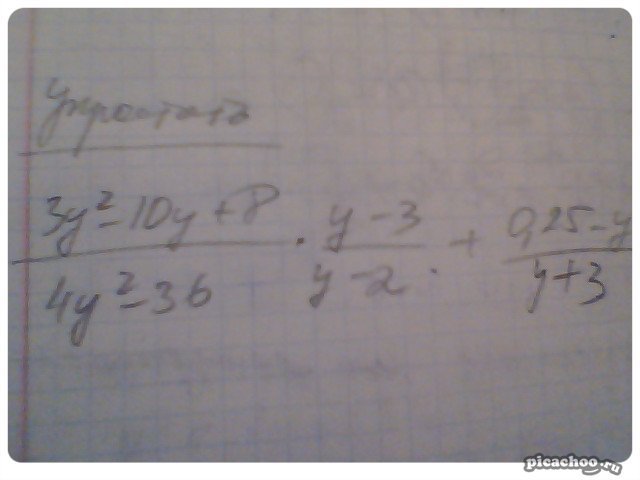 Упростить
3y²-10y+8 / 4y²-36 · y-3 / y-2 + 0,25-y / y+3
picachoo.ru